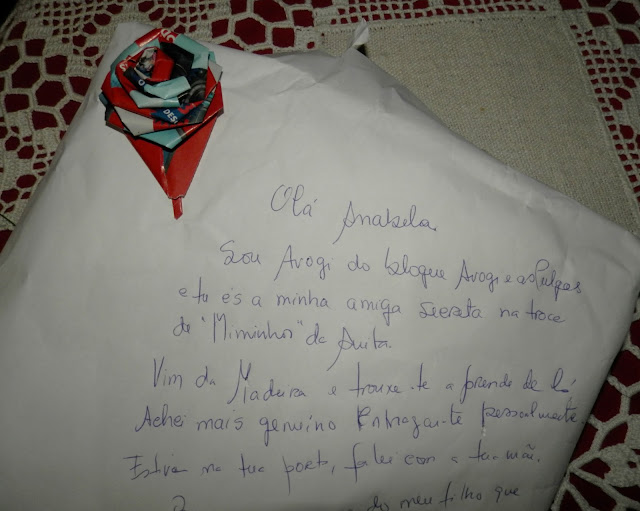 DES
Olá Anabela.
Sou Avogi do blogue Avogi e as Pulgas
e tu és a minha amiga secreta na troca
de "Miminhos" da Anita.
Vim da Madeira e trouxe-te a prenda de lá
Achei mais genuíno entregar-te pessoalmente.
Estive na tua porta, falei com a tua mãe.
do meu filho que